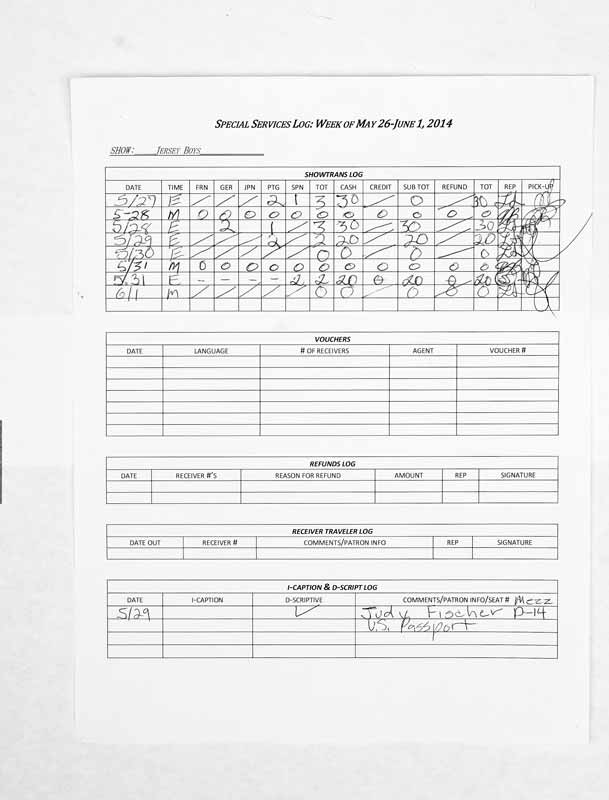 SPECIAL SERVICES LOG: WEEK OF MAY 26-JUNE 1, 2014
SHOW: JERSEY BOYS
SHOWTRANS LOG
DATE TIME FRN GER JPN PTG SPN TOT CASH CREDIT SUB TOT REFUND TOT REP PICK-UP
5/27 E / / / 2 1 3 30 / 0 / 30 Ls
5-28 M 0 0 0 0 0 0 0 0 0 0 0
5/28 E / 2 / 1 / 3 30 / 30 / 30 Ls
5/29 E / / / 2 / 2 20 / 20 / 20 Ls
5/30 E / / / / / 0 0 / 0 / 0 Ls
5/31 M 0 0 0 0 0 0 0 0 0 0 0
5.31 E - - - - 2 2 20 0 20 0 20
6/1 M / / / / / 0 0 / 0 0 0 Ls
VOUCHERS
DATE LANGUAGE # OF RECEIVERS AGENT VOUCHER #
REFUNDS LOG
DATE RECEIVER #'S REASON FOR REFUND AMOUNT REP SIGNATURE
RECEIVER TRAVELER LOG
DATE OUT RECEIVER # COMMENTS/PATRON INFO REP SIGNATURE
I-CAPTION & D-SCRIPT LOG
DATE I-CAPTION D-SCRIPTIVE COMMENTS/PATRON INFO/SEAT # Mezz
5/29 ✓ Judy Fischer D-14
U.S. Passport